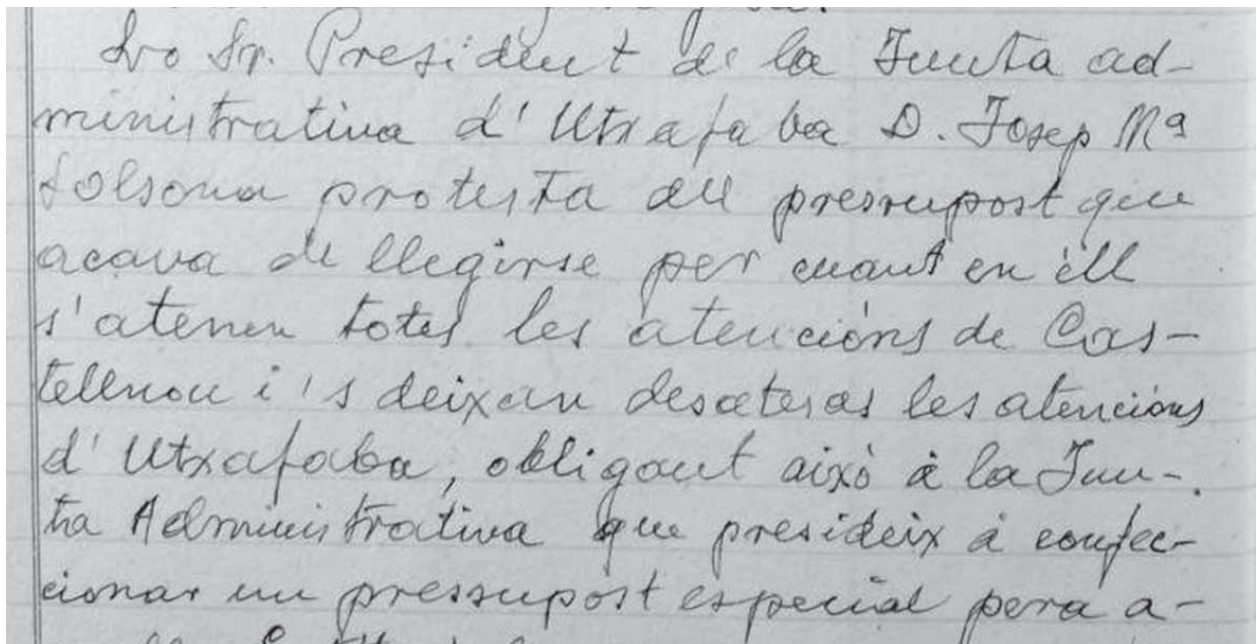 Lo Sr. President de la Junta ad-
ministrativa d'Utxafaba D. Josep Mª
Solsona protesta del pressupost que
acava de llegirse per cuant en èll
s'atenen totes les atencións de Cas-
tellnou i 's deixan desateses les atencións
d'Utxafaba, obligant aixó á la Jun-
ta Administrativa que presideix á confec-
cionar un pressupost especial pera a-